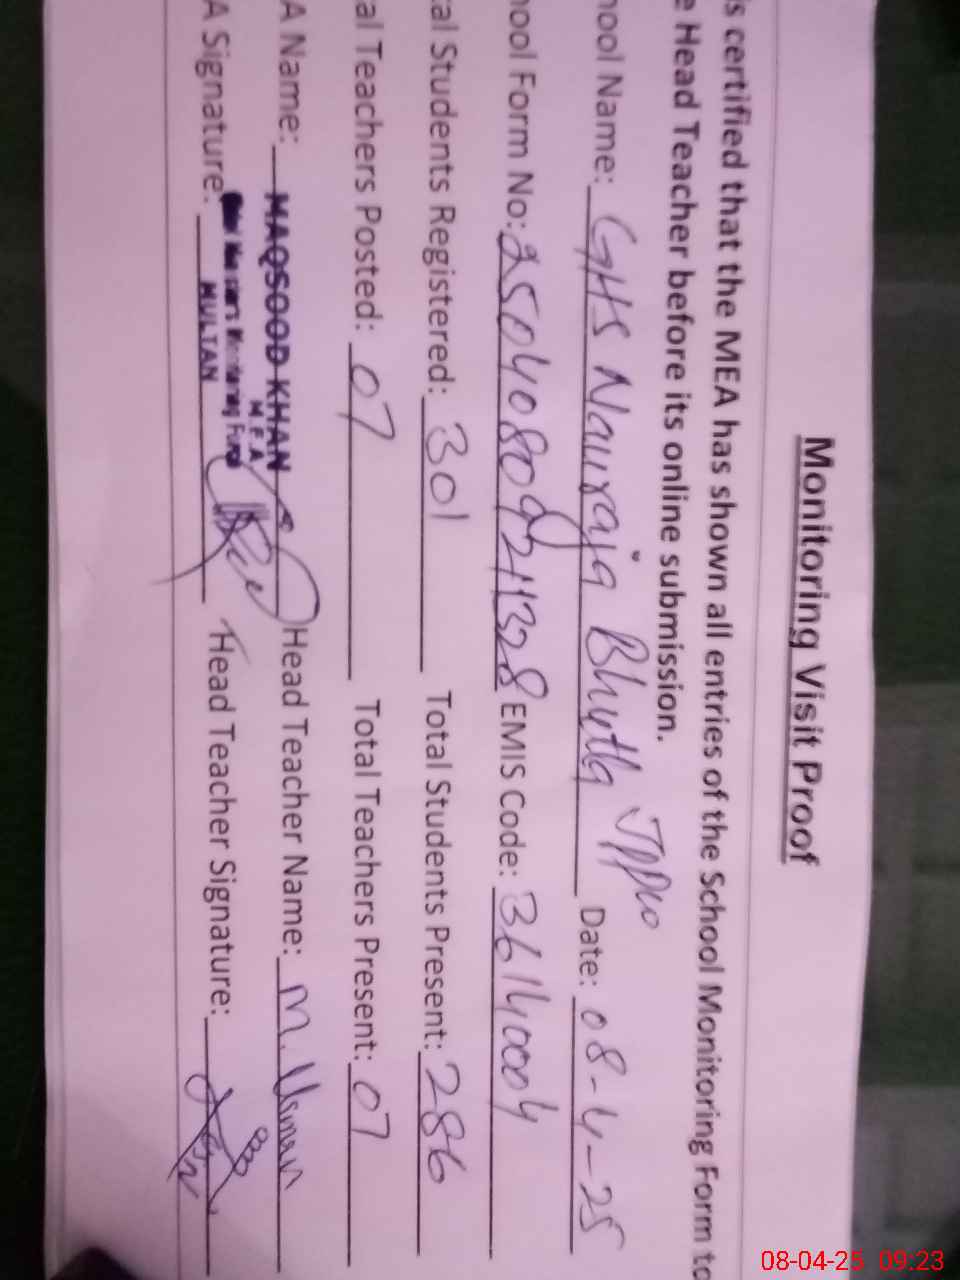 Monitoring Visit Proof
is certified that the MEA has shown all entries of the School Monitoring Form to
e Head Teacher before its online submission.
hool Name: GHS Nauraja Bhutta Date: 08-4-25
hool Form No: EMIS Code: 36140004
tal Students Registered: 301 Total Students Present: 286
al Teachers Posted: 07 Total Teachers Present: 07
A Name: MAQSOOD KHAN Head Teacher Name: M. Usman
M.E.A
A Signature: Monitoring Force Head Teacher Signature:
MULTAN
08-04-25 09:23